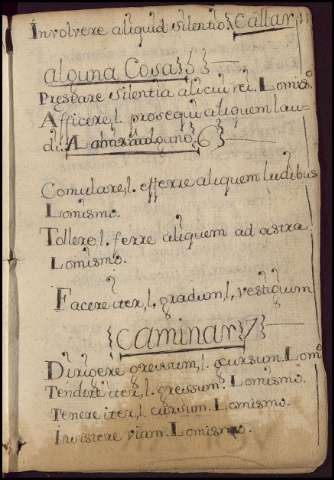 Involvere aliquid silentio {Callar
alguna Cosa} 5 }
Prestare silentia alicui rei. Lomis.º
Afficere, l. prosequi aliquem lau-
di. 6}
Comulare, l. efferre aliquem ludibus
Lomismo.
Tollere, l. ferre aliquem ad astra
Lomismo.
Facere iter, l. gradum, l. vestigium
{caminar} 7}
Dirigere gressum, l. cursum. Lomº
Tendere iter, l. gressum. Lomismo.
Tenere iter, l. cursum. Lomismo.
Insistere viam. Lomismo.